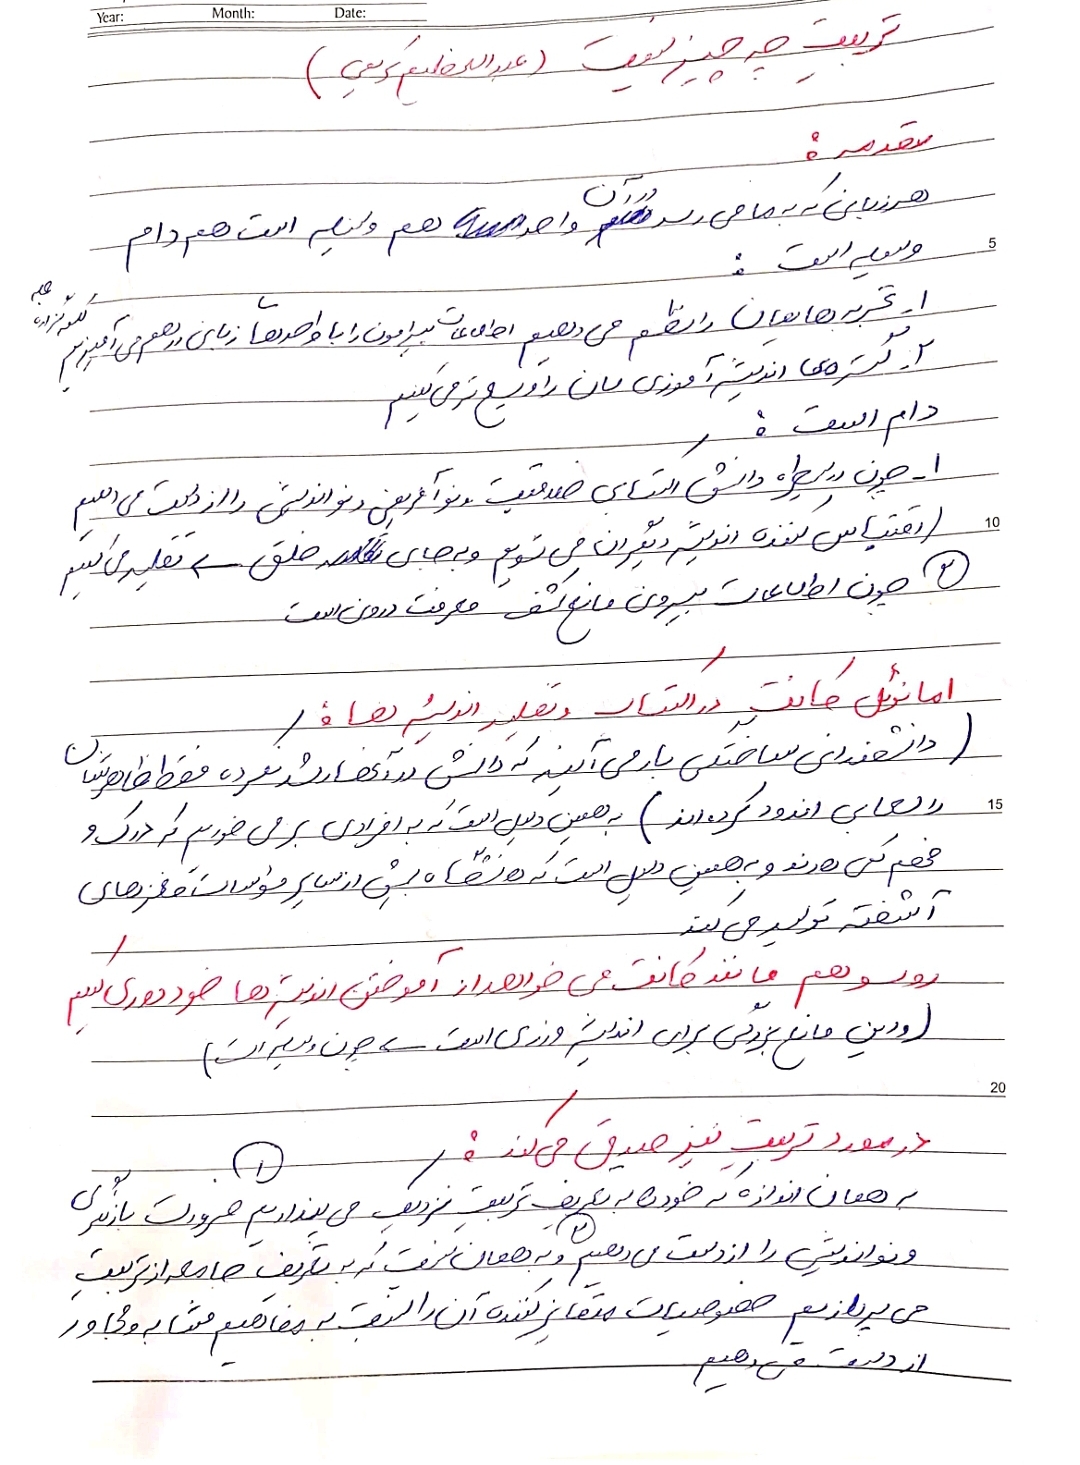 Year: Month: Date:
تربیت چه چیز نیست (عبدالعظیم کریمی)
مقدمه :
هر زبانی که به ما می رسد در آن واحد هم وسیله است هم دام
5
وسیله است :
۱- تجربه هایمان را نظم می دهیم اطلاعات پیرامون را با واحدها زبانی در هم می آمیزیم
۲- گستره ی اندیشه آموزی مان را وسیع تر می کنیم
دام است :
۱- چون در پیِ دانش اکتسابی خلاقیت و نوآفرینی و نواندیشی را از دست می دهیم
10
(اقتباس کننده اندیشه دیگران می شویم و به جای خلق ← تقلید می کنیم
۲ چون اطلاعات بیرونی مانع کشف معرفت درونی است
امانوئل کانت در اکتساب و تقلید اندیشه ها :
(دانشمندانی ساختگی بار می آیند که دانش در آنها رشد نکرده فقط ظاهرشان
15
را لعابی اندود کرده اند) به همین دلیل است که به افرادی بر می خوریم که درک و
فهم کمی دارند و به همین دلیل است که دانشگاه بیش از سایر مؤسسات مغزهای
آشفته تولید می کند
روسو هم مانند کانت می خواهد از آموختن اندیشه ها خود دوری کنیم
(و این مانع بزرگی برای اندیشه ورزی است ← چون وسیله است)
20
در مورد تربیت نیز صدق می کند :
۱
به همان اندازه که خود را به تعریف تربیت نزدیک می پنداریم ضرورت بازنگری
و نواندیشی را از دست می دهیم ۲ و به همان نسبت که به تعریف جامع از تربیت
می پردازیم خصوصیات متمایز کننده آن را نسبت به مفاهیم مشابه و مجاور
از دست می دهیم